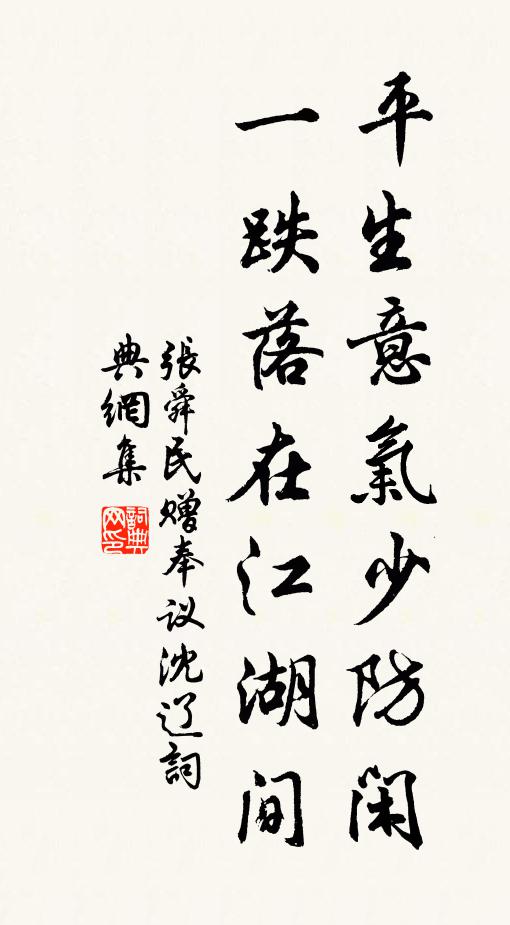 平生意氣少防閑
一跌落在江湖間
張舜民贈奉议沈辽詞
典網集
詞典网印